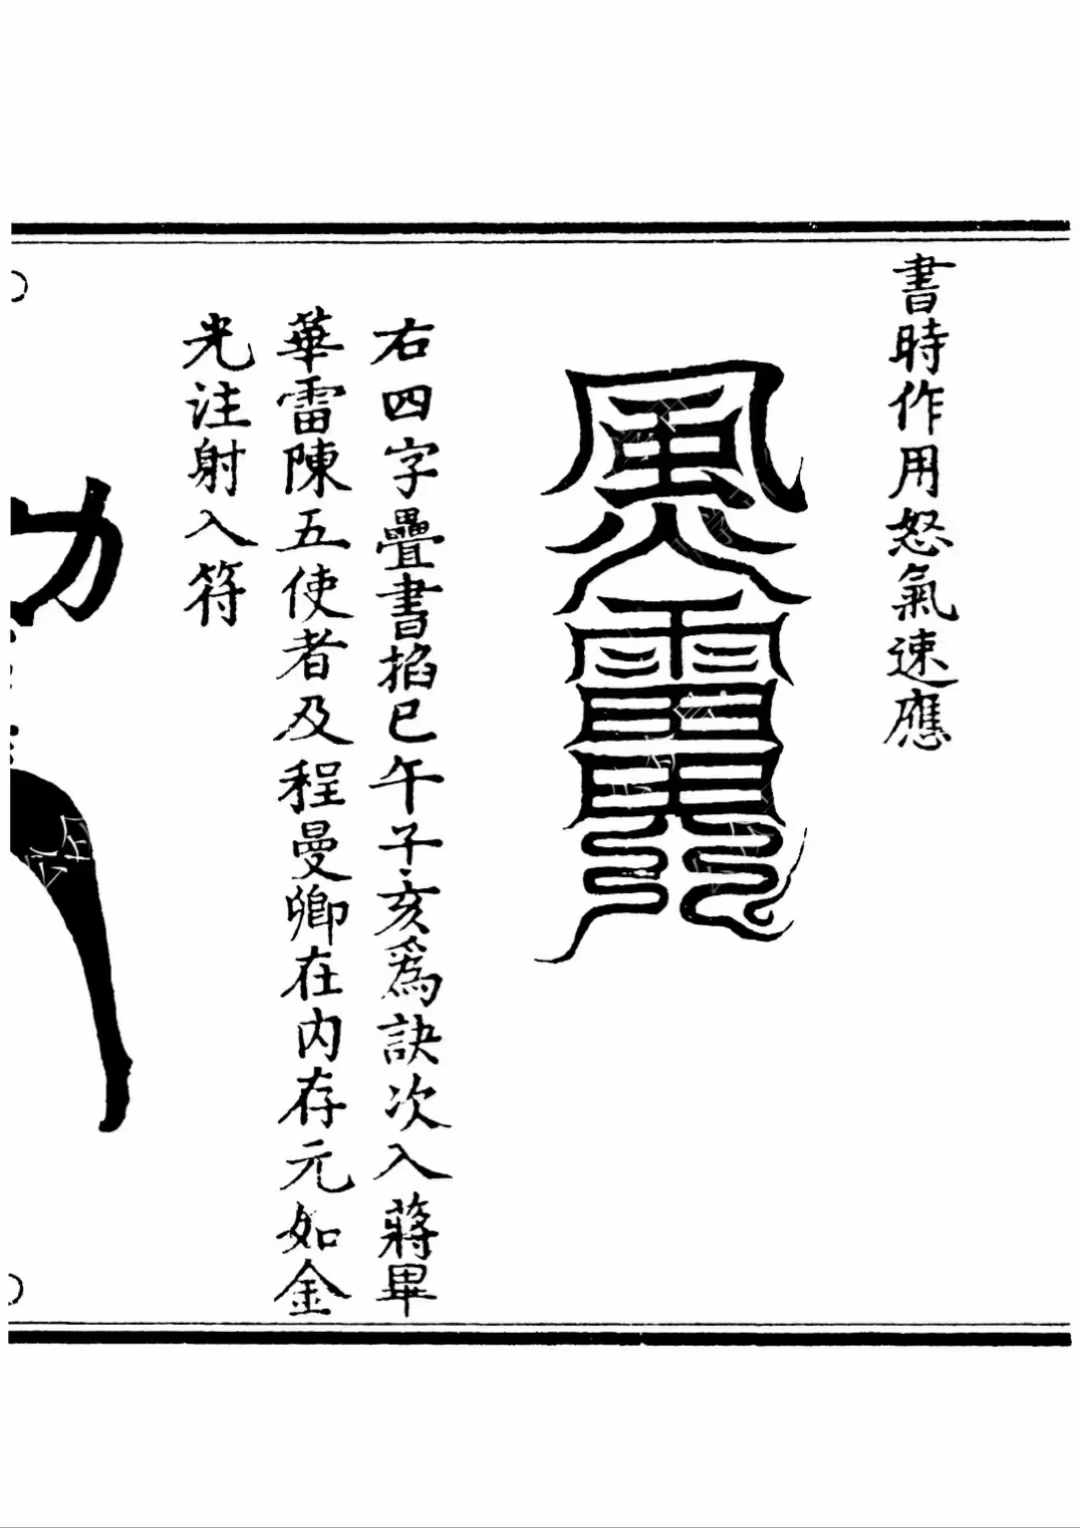 書時作用怒氣速應
風火雷
右四字疊書掐巳午子亥為訣次入蔣畢
華雷陳五使者及程曼卿在内存元如金
光注射入符